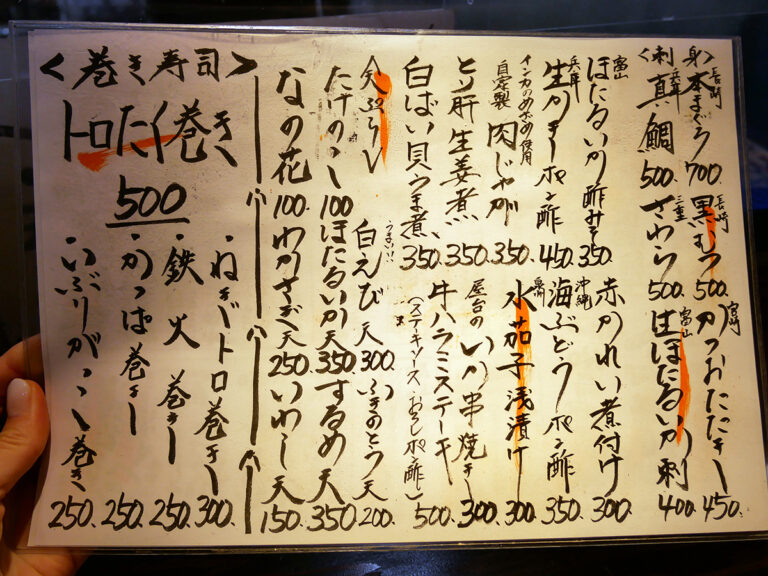 <刺身>
長崎 本まぐろ 700
長崎 黒むつ 500
宮崎 かつおたたき 450
兵庫 真鯛 500
三重 さわら 500
富山 生ほたるいか刺 400
富山 ほたるいか酢みそ 350
赤かれい煮付け 300
兵庫 生かきポン酢 450
沖縄 海ぶどうポン酢 350
インカのめざめ使用
自家製 肉じゃが 350
水茄子浅漬け 300
とり肝生姜煮 350
屋台の いか串焼き 300
白ばい貝うま煮 350
牛ハラミステーキ 500
(ステーキソース or おろしポン酢)
<天ぷら>
うまい!!
白えび天 300
ふきのとう天 200
たけのこ 100
ほたるいか天 350
するめ天 350
なの花 100
わかさぎ天 250
いわし天 150
<巻き寿司>
トロたく巻き
500
・ねぎトロ巻き 300
・鉄火巻き 250
・かっぱ巻き 250
・いぶりがっこ巻き 250